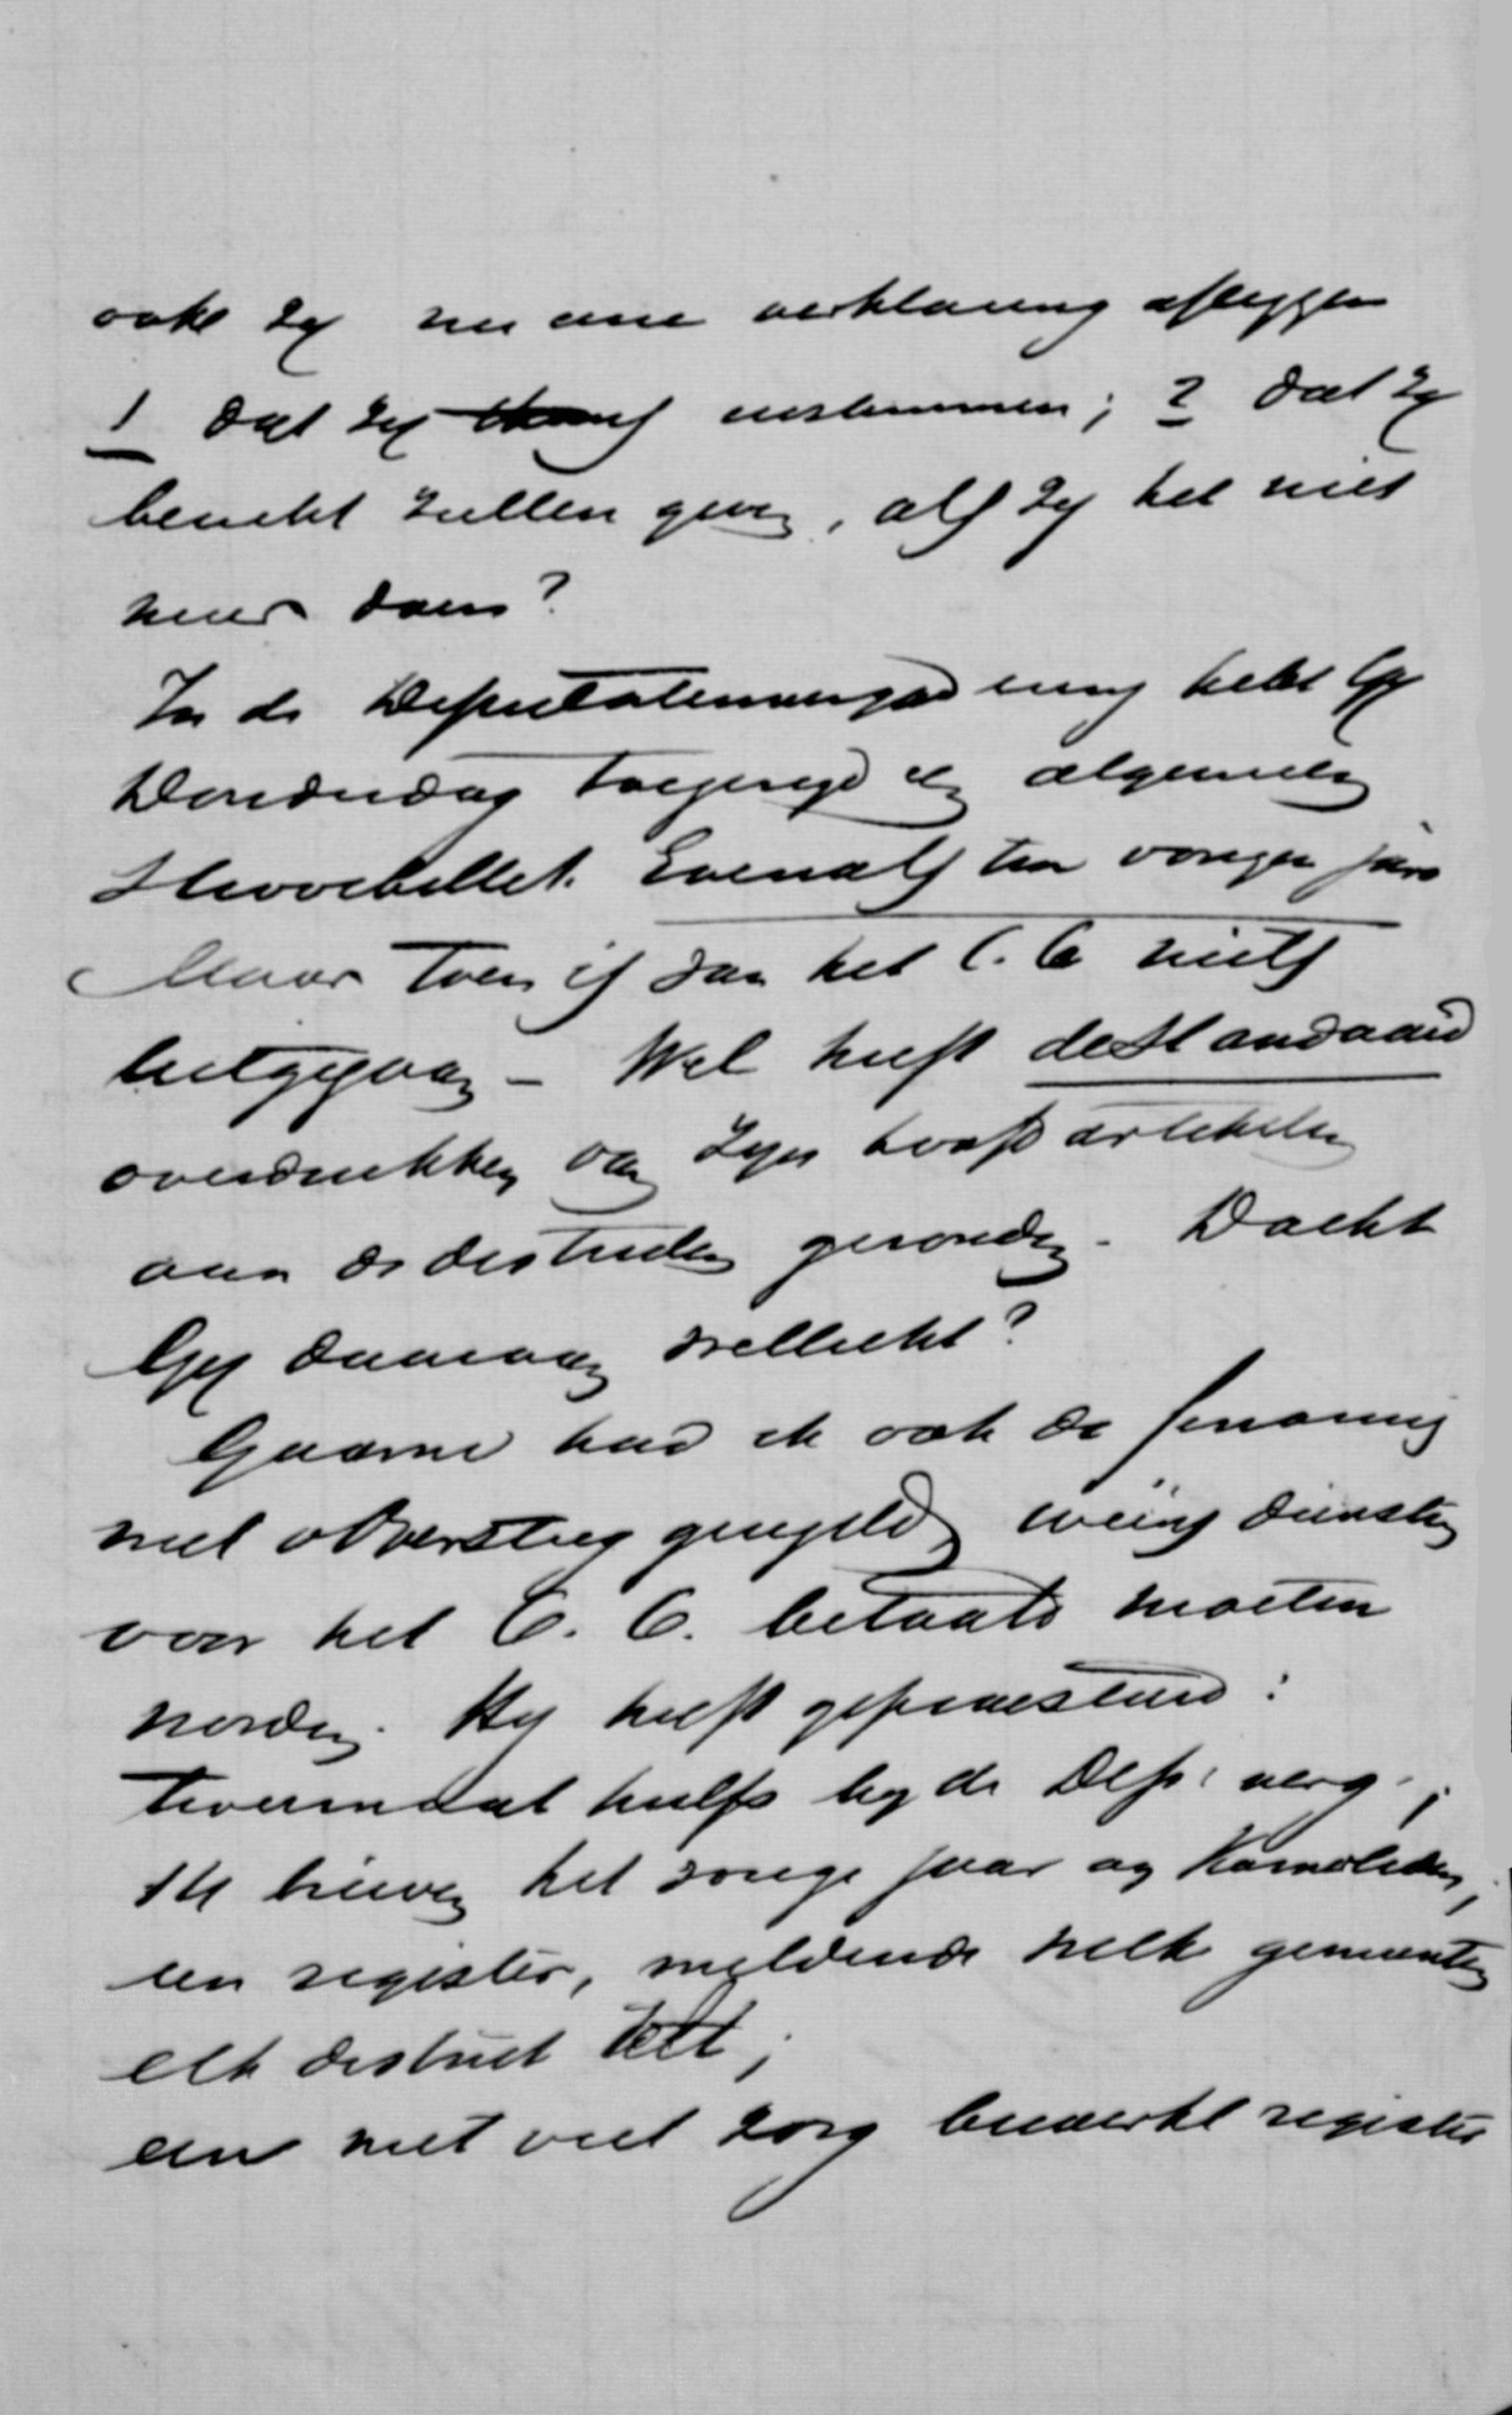 ook zij nu een verklaring afleggen
1 dat zij instemmen; 2 dat zij
bericht zullen geven, als zij het niet
meer doen?
In de Deputatenvergadering hebt Gij
Donderdag toegezegd een algemeen
Strooibillet. Evenals ten vorigen jare
Maar toen is van het C.C. niets
uitgegaan – Wel heeft de Standaard
overdrukken van Zijn hoofdartikelen
aan de districten gezonden. Dacht
Gij daaraan wellicht?
Gaarne had ik ook de
met weinig diensten
voor het C.C. betaald moeten
worden. Hij heeft gepraesteerd:
tweemaal hulp bij de Dep. verg.;
14 brieven het vorige jaar aan Kamerleden,
een register, meldende welk gemeenten
elk district telt;
een met veel zorg bewerkt register